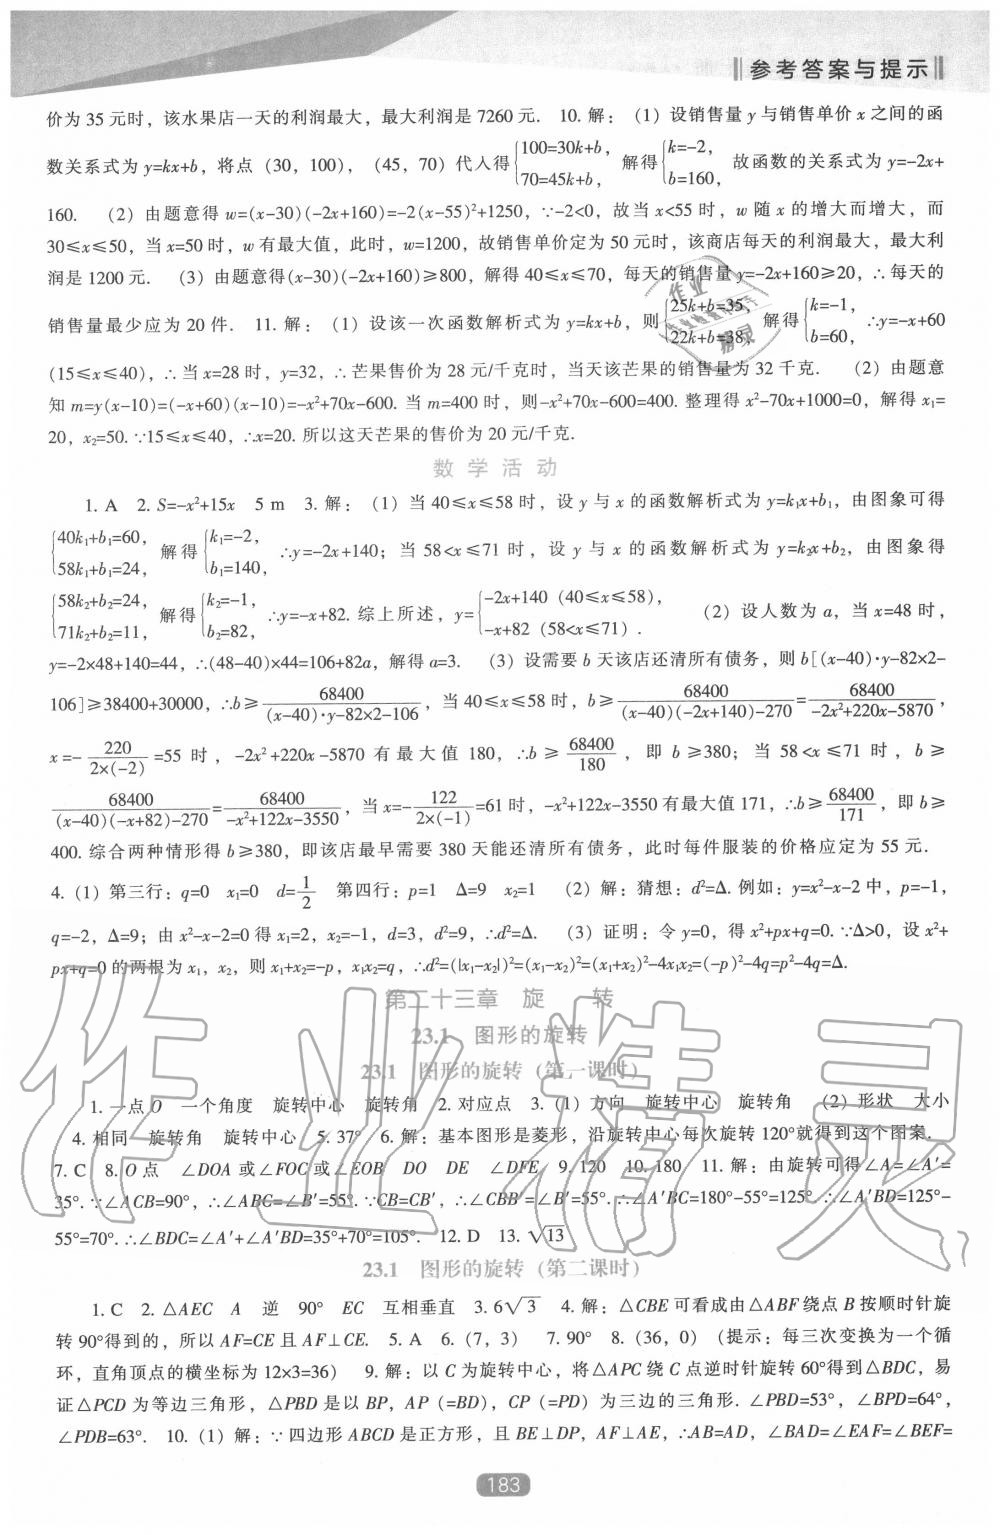 参考答案与提示
价为 35 元时，该水果店一天的利润最大，最大利润是 7260 元. 10. 解：(1) 设销售量 y 与销售单价 x 之间的函
数关系式为 y=kx+b，将点 (30，100)，(45，70) 代人得{100=30k+b，70=45k+b， 解得{k=-2，b=160， 故函数的关系式为 y=-2x+
160. (2) 由题意得 w=(x-30)(-2x+160)=-2(x-55)²+1250，∵-2<0，故当 x<55 时，w 随 x 的增大而增大，而
30≤x≤50，当 x=50 时，w 有最大值，此时，w=1200，故销售单价定为 50 元时，该商店每天的利润最大，最大利
润是 1200 元. (3) 由题意得(x-30)(-2x+160)≥800，解得 40≤x≤70，每天的销售量 y=-2x+160≥20，∴每天的
销售量最少应为 20 件. 11. 解：(1) 设该一次函数解析式为 y=kx+b，则{25k+b=35，22k+b=38， 解得{k=-1，b=60， ∴y=-x+60
(15≤x≤40)，∴当 x=28 时，y=32，∴芒果售价为 28 元/千克时，当天该芒果的销售量为 32 千克. (2) 由题意
知 m=y(x-10)=(-x+60)(x-10)=-x²+70x-600. 当 m=400 时，则-x²+70x-600=400. 整理得 x²-70x+1000=0，解得 x₁=
20，x₂=50. ∵15≤x≤40，∴x=20. 所以这天芒果的售价为 20 元/千克.
数学活动
1. A 2. S=-x²+15x 5 m 3. 解：(1) 当 40≤x≤58 时，设 y 与 x 的函数解析式为 y=k₁x+b₁，由图象可得
{40k₁+b₁=60，58k₁+b₁=24， 解得{k₁=-2，b₁=140， ∴y=-2x+140；当 58<x≤71 时，设 y 与 x 的函数解析式为 y=k₂x+b₂，由图象得
{58k₂+b₂=24，71k₂+b₂=11， 解得{k₂=-1，b₂=82， ∴y=-x+82. 综上所述，y={-2x+140 (40≤x≤58)，-x+82 (58<x≤71). (2) 设人数为 a，当 x=48 时，
y=-2×48+140=44，∴(48-40)×44=106+82a，解得 a=3. (3) 设需要 b 天该店还清所有债务，则 b[(x-40)·y-82×2-
106]≥38400+30000，∴b≥68400/((x-40)·y-82×2-106)，当 40≤x≤58 时，b≥68400/((x-40)(-2x+140)-270)=68400/(-2x²+220x-5870)，
x=-220/(2×(-2))=55 时，-2x²+220x-5870 有最大值 180，∴b≥68400/180，即 b≥380；当 58<x≤71 时，b≥
68400/((x-40)(-x+82)-270)=68400/(-x²+122x-3550)，当 x=-122/(2×(-1))=61 时，-x²+122x-3550 有最大值 171，∴b≥68400/171，即 b≥
400. 综合两种情形得 b≥380，即该店最早需要 380 天能还清所有债务，此时每件服装的价格应定为 55 元.
4. (1) 第三行：q=0 x₁=0 d=1/2 第四行：p=1 Δ=9 x₂=1 (2) 解：猜想：d²=Δ. 例如：y=x²-x-2 中，p=-1，
q=-2，Δ=9；由 x²-x-2=0 得 x₁=2，x₂=-1，d=3，d²=9，∴d²=Δ. (3) 证明：令 y=0，得 x²+px+q=0. ∵Δ>0，设 x²+
px+q=0 的两根为 x₁，x₂，则 x₁+x₂=-p，x₁x₂=q，∴d²=(|x₁-x₂|)²=(x₁-x₂)²=(x₁+x₂)²-4x₁x₂=(-p)²-4q=p²-4q=Δ.
第二十三章 旋 转
23.1 图形的旋转
23.1 图形的旋转 (第一课时)
1. 一点 O 一个角度 旋转中心 旋转角 2. 对应点 3. (1) 方向 旋转中心 旋转角 (2) 形状 大小
4. 相同 旋转角 旋转中心 5. 37° 6. 解：基本图形是菱形，沿旋转中心每次旋转 120°就得到这个图案.
7. C 8. O 点 ∠DOA 或∠FOC 或∠EOB DO DE ∠DFE 9. 120 10. 180 11. 解：由旋转可得∠A=∠A′=
35°. ∵∠ACB=90°，∴∠ABC=∠B′=55°. ∵CB=CB′，∴∠CBB′=∠B′=55°. ∴∠A′BC=180°-55°=125°. ∴∠A′BD=125°-
55°=70°. ∴∠BDC=∠A′+∠A′BD=35°+70°=105°. 12. D 13. √13
23.1 图形的旋转 (第二课时)
1. C 2. △AEC A 逆 90° EC 互相垂直 3. 6√3 4. 解：△CBE 可看成由△ABF 绕点 B 按顺时针旋
转 90°得到的，所以 AF=CE 且 AF⊥CE. 5. A 6. (7，3) 7. 90° 8. (36，0) (提示：每三次变换为一个循
环，直角顶点的横坐标为 12×3=36) 9. 解：以 C 为旋转中心，将△APC 绕 C 点逆时针旋转 60°得到△BDC，易
证△PCD 为等边三角形，△PBD 是以 BP，AP (=BD)，CP (=PD) 为三边的三角形. ∠PBD=53°，∠BPD=64°，
∠PDB=63°. 10. (1) 解：∵四边形 ABCD 是正方形，且 BE⊥DP，AF⊥AE，∴AB=AD，∠BAD=∠EAF=∠BEF=
183
作业精灵